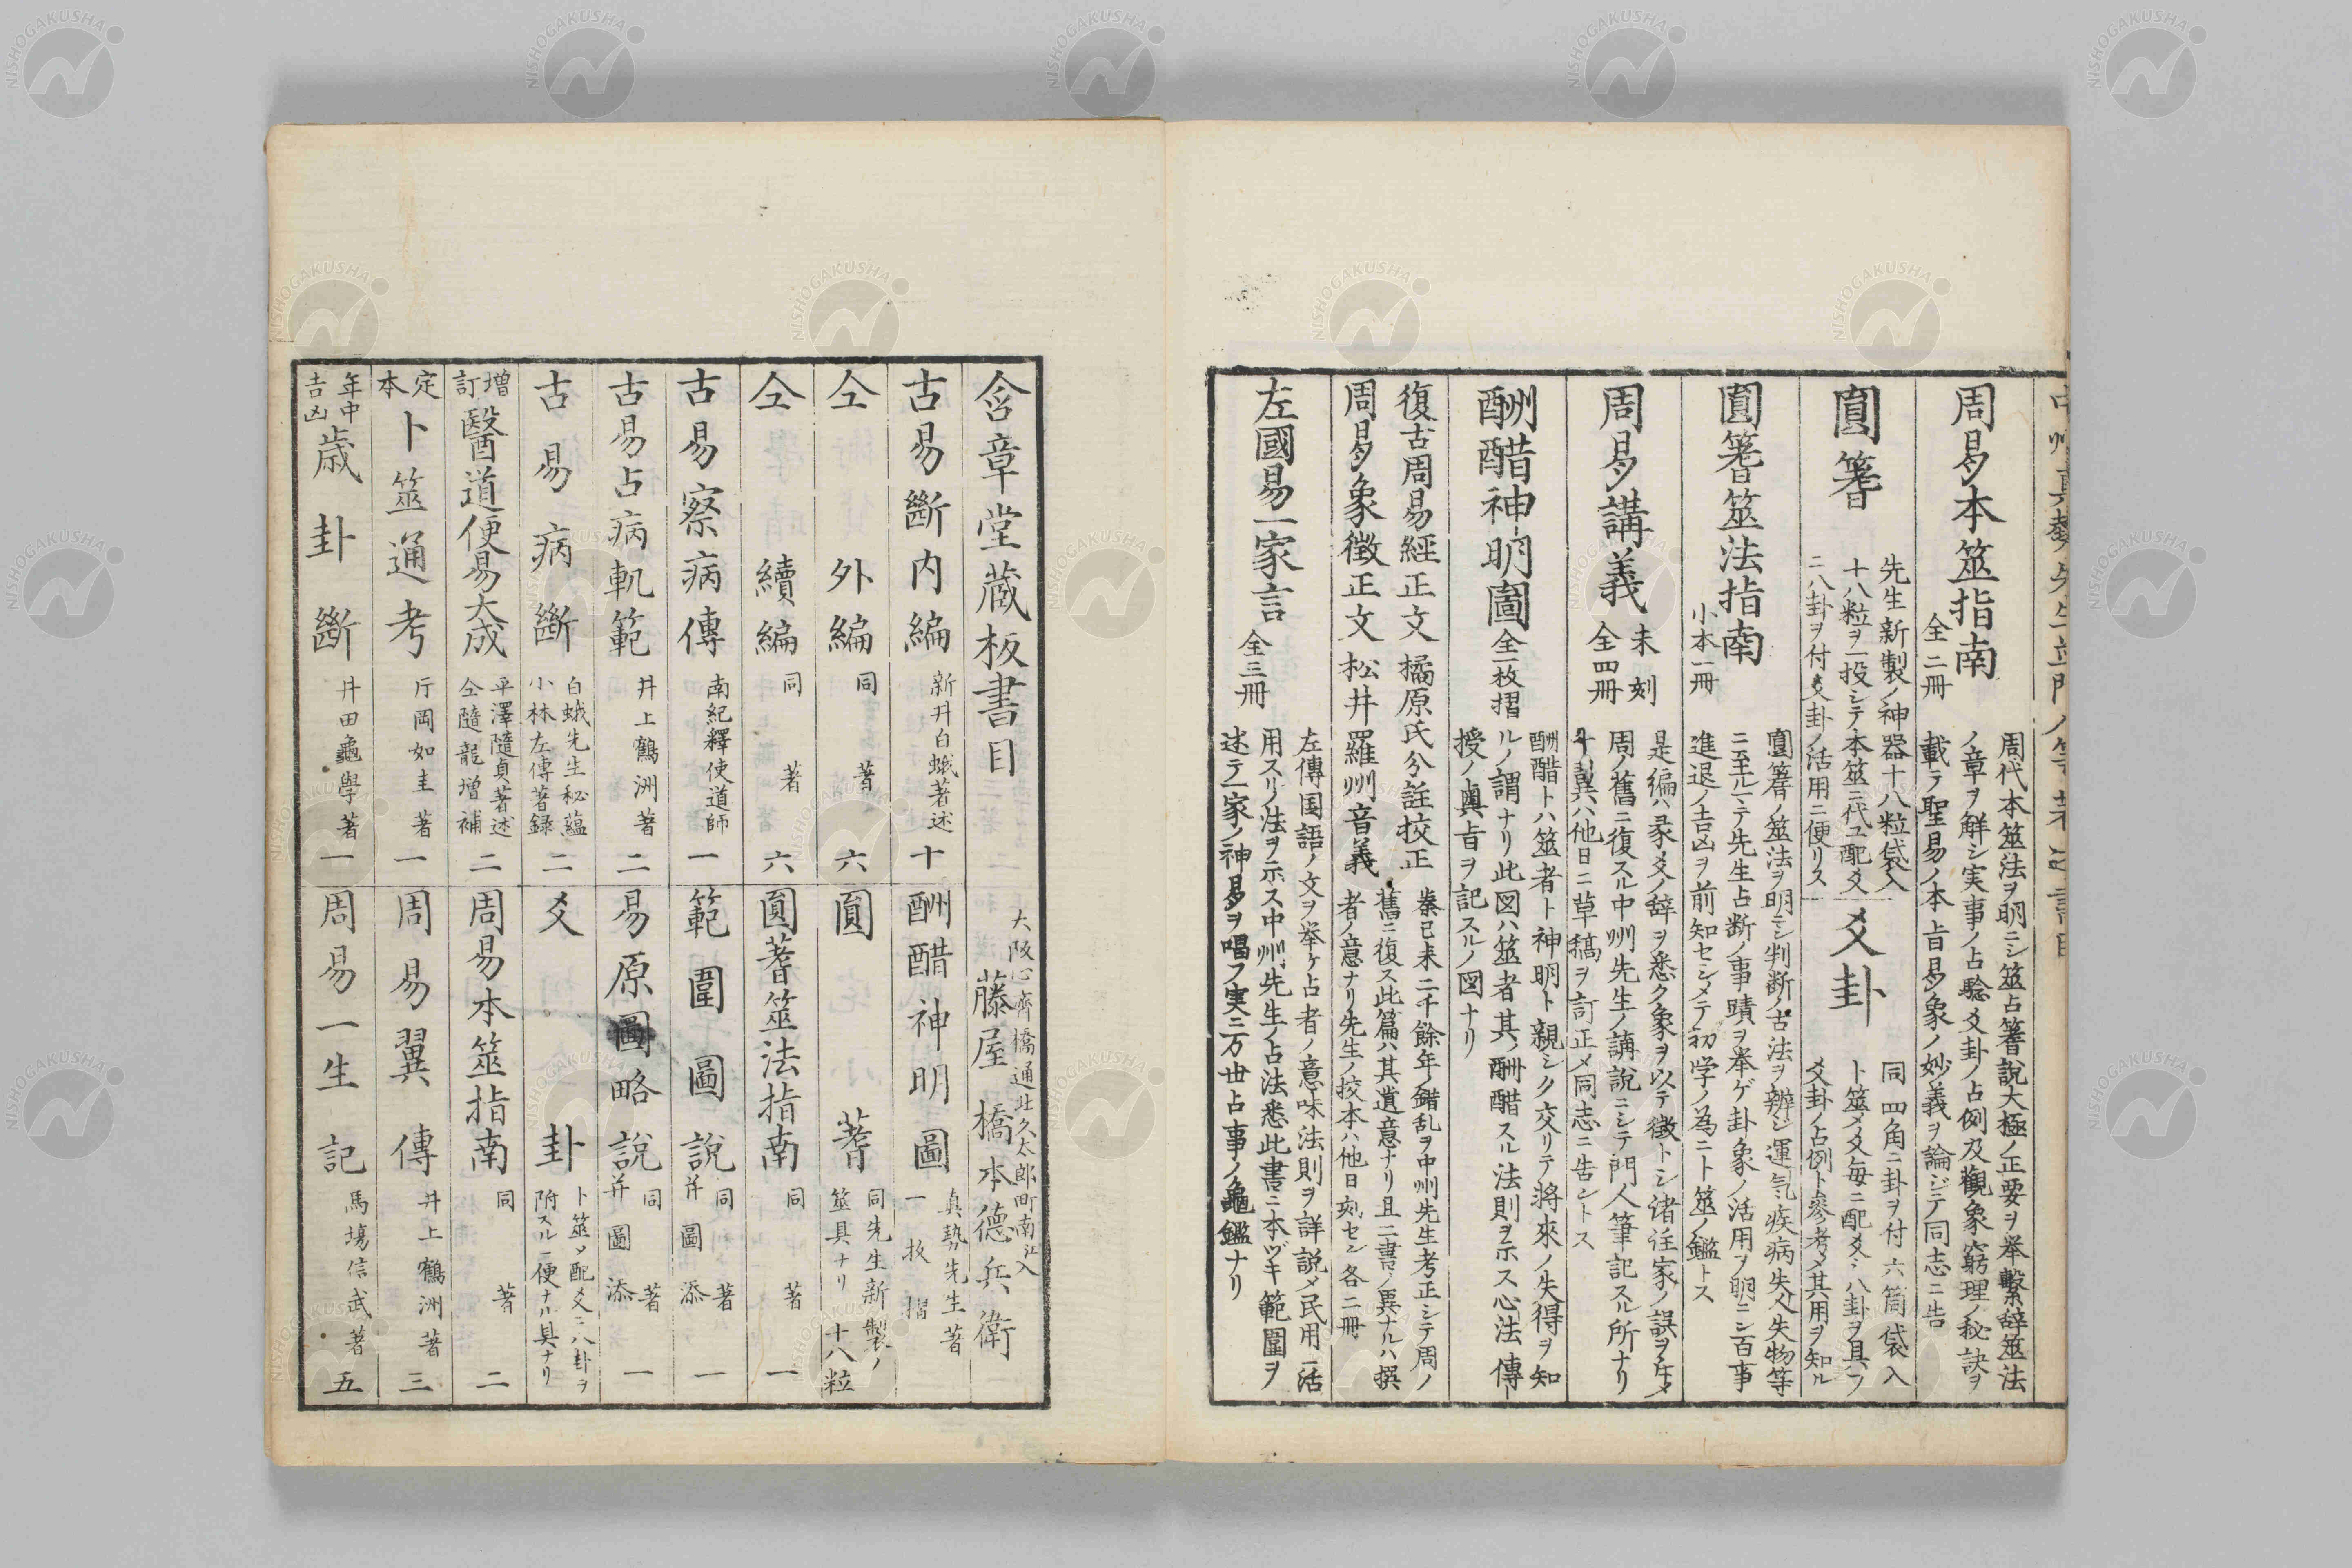 周易本筮指南 全二冊
周代本筮法ヲ明ニシ筮占蓍説大極ノ正要ヲ挙繋辞筮法
ノ章ヲ解シ実事ノ占驗爻卦ノ占例及觀象窮理ノ秘訣ヲ
載テ聖易ノ本旨易象ノ妙義ヲ論ジテ同志ニ告
圓蓍
先生新製ノ神器十八粒袋入
十八粒ヲ一投シテ本筮ニ代ユ配爻
ニ八卦ヲ付爻卦ノ活用ニ便リス
爻卦
同四角ニ卦ヲ付六箇袋入
卜筮メ爻毎ニ配爻シ八卦ヲ具フ
爻卦ノ占例ト參考メ其用ヲ知ル
圓蓍筮法指南 小本一冊
圓蓍ノ筮法ヲ明ニシ判断ノ古法ヲ辨ジ運気疾病失人失物等
ニ至ル一テ先生占断ノ事蹟ヲ举ゲ卦象ノ活用ヲ明ニシ百事
進退ノ吉凶ヲ前知セシメテ初学ノ為ニト筮ノ鑑トス
周易講義 未刻 全四冊
是編ハ彖爻ノ辞ヲ悉ク象ヲ以テ徴トシ诸注家ノ誤ヲ
周ノ舊ニ復スル中州先生ノ講説ニシテ門人筆記スル所ナリ
十翼ハ他日ニ草稿ヲ訂正メ同志ニ告ントス
酬醋神明圖 全一枚摺
酬醋トハ筮者ト神明ト親シク交リテ將來ノ失得ヲ知
ルノ謂ナリ此図ハ筮者其ノ酬醋スル法則ヲ示ス心法傳
授ノ奥旨ヲ記スルノ図ナリ
復古周易經正文 橘原氏分註挍正
周易象徴正文 松井羅州音義
秦已来二千餘年ノ錯乱ヲ中州先生考正シテ周ノ
舊ニ復ス此篇ハ其遺意ナリ且二書ノ異ナルハ撰
者ノ意ナリ先生ノ挍本ハ他日刻セン各二冊
左國易一家言 全三冊
左傳国語ノ文ヲ举ケ占者ノ意味法則ヲ詳説メ民用ニ活
用スリノ法ヲ示ス中州先生ノ占法悉此書ニ本ヅキ範圍ヲ
述テ一家ノ神易ヲ唱フ実ニ万世占事ノ龜鑑ナリ
含章堂蔵板書目
大阪心齊橋通北久太郎町南江入
藤屋 橋本德兵衛
古易斷内編 新井白蛾著述 十
仝 外編 同著 六
仝 續編 同著 六
古易察病傳 南紀釋使道師 一
古易占病軌範 井上鶴洲著 二
古易病斷 白蛾先生秘蘊 小林左傳著録 二
増訂 醫道便易大成 平澤隨貞著述 仝隨龍增補 二
定本 卜筮通考 片岡如圭著 一
年中吉凶 歳卦斷 井田龜學著 一
酬醋神明圖 真勢先生著 一枚摺
圓蓍 同先生新製ノ筮具ナリ 十八粒
圓蓍筮法指南 同著 一
範圍圖說 同著 并圖添 一
易原圖略說 同著 并圖添 一
爻卦 卜筮メ配爻ニ八卦ヲ附スル便ナル具ナリ
周易本筮指南 同著 二
周易翼傳 井上鶴洲著 三
周易一生記 馬塲信武著 五
NISHOGAKUSHA